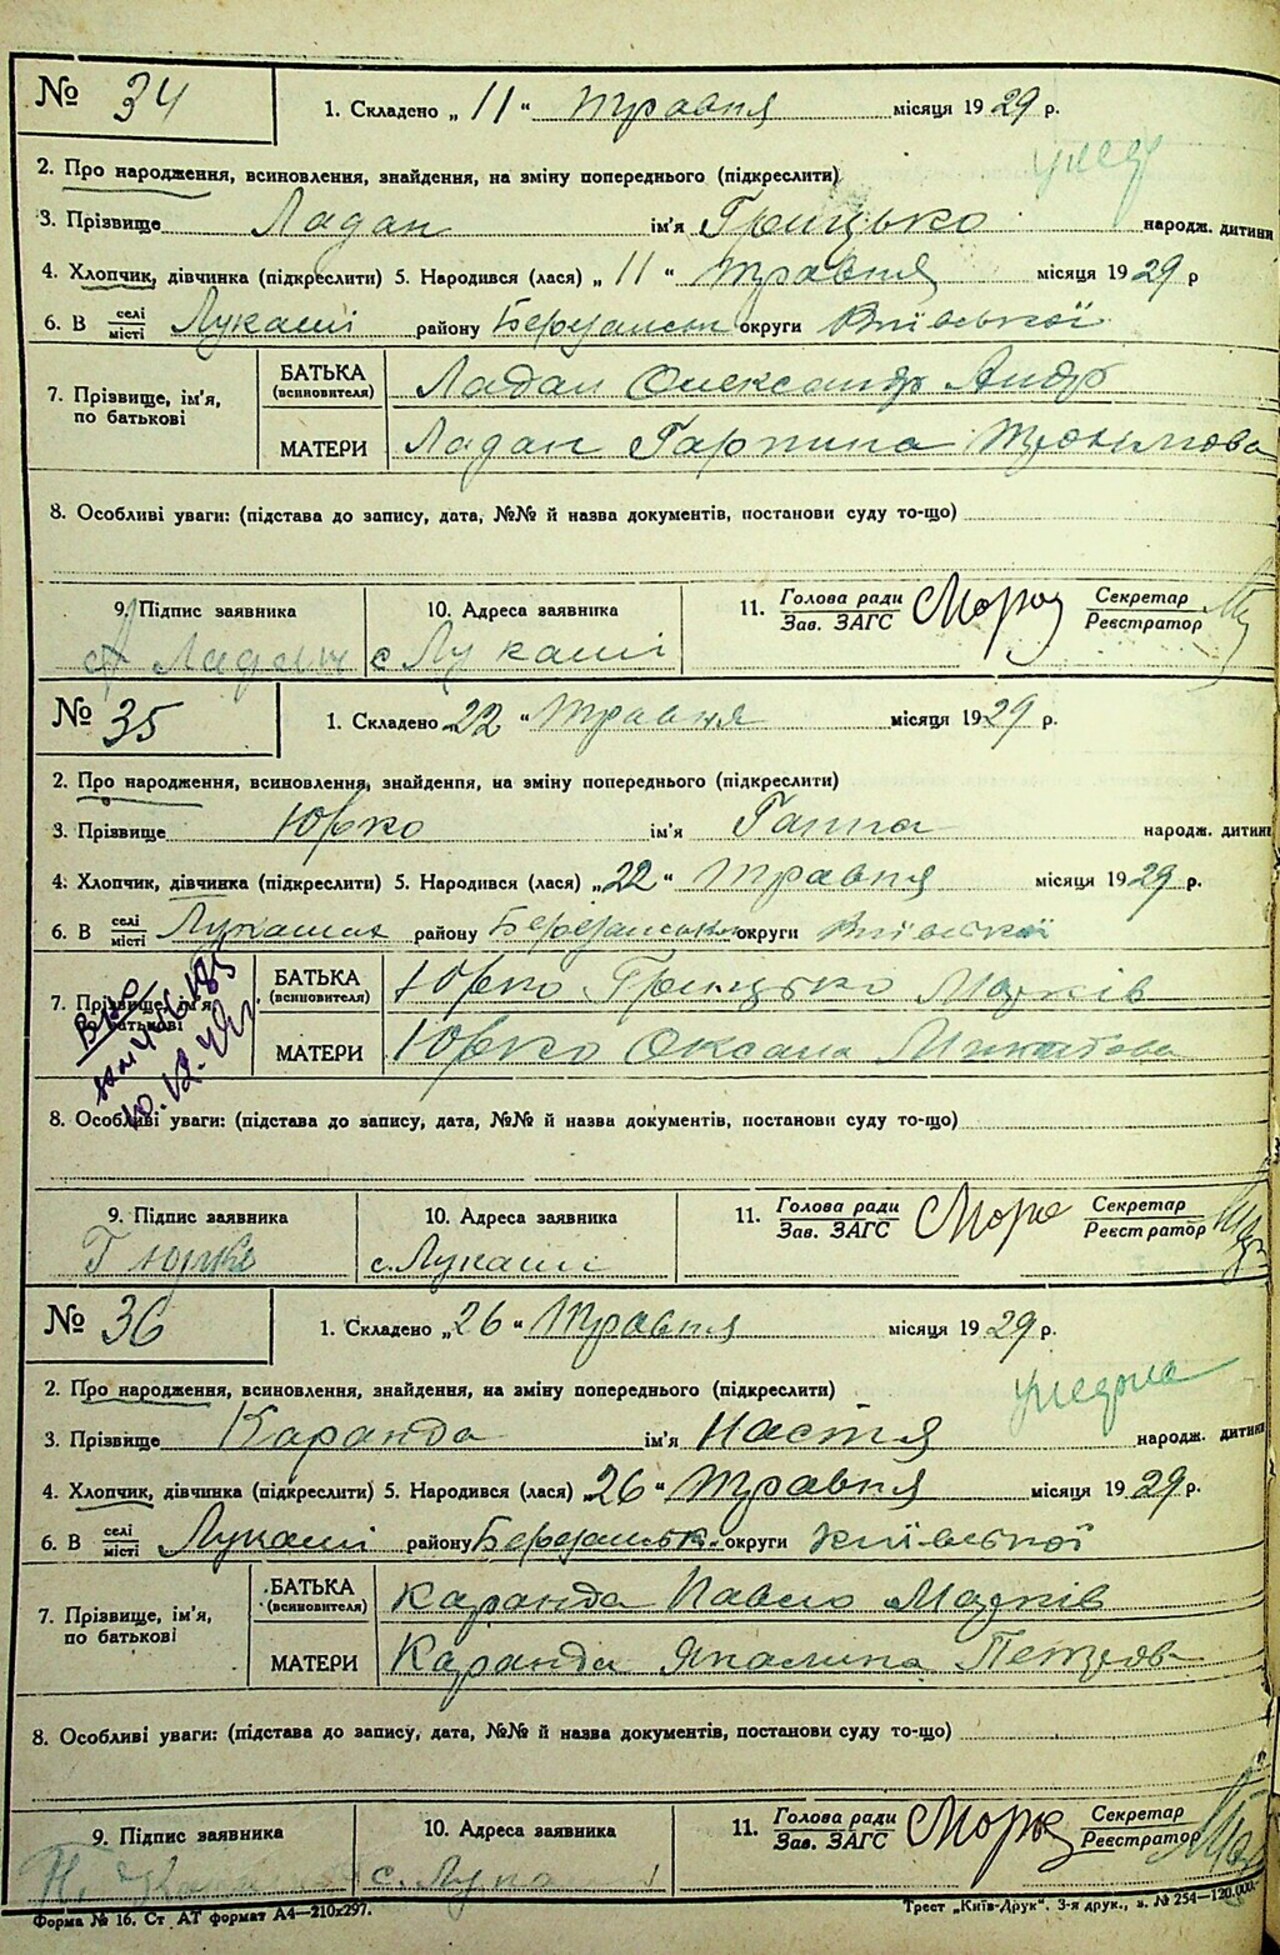 № 34
1. Складено „ 11 “ травня місяця 19 29 р.
2. Про народження, всиновлення, знайдення, на зміну попереднього (підкреслити)
3. Прізвище Ладан ім'я Грицько народж. дитини
4. Хлопчик, дівчинка (підкреслити) 5. Народився (лася) „ 11 “ травня місяця 19 29 р
6. В селі/місті Лукаші району Березанськ округи Київської
7. Прізвище, ім'я, по батькові
БАТЬКА (всиновителя) Ладан Олександр Андр
МАТЕРИ Ладан Гарпина
8. Особливі уваги: (підстава до запису, дата, №№ й назва документів, постанови суду то-що)
9. Підпис заявника 10. Адреса заявника 11. Голова ради/Зав. ЗАГС Мороз Секретар/Реєстратор
А Ладан с Лукаші
№ 35
1. Складено „22 “ травня місяця 19 29 р.
2. Про народження, всиновлення, знайдення, на зміну попереднього (підкреслити)
3. Прізвище Юрко ім'я Ганна народж. дитини
4. Хлопчик, дівчинка (підкреслити) 5. Народився (лася) „ 22 “ травня місяця 19 29 р.
6. В селі/місті Лукашах району Березанськ округи Київської
7. Прізвище, ім'я, по батькові
БАТЬКА (всиновителя) Юрко Грицько Марків
МАТЕРИ Юрко Оксана
8. Особливі уваги: (підстава до запису, дата, №№ й назва документів, постанови суду то-що)
9. Підпис заявника 10. Адреса заявника 11. Голова ради/Зав. ЗАГС Мороз Секретар/Реєстратор
Г Юрко с. Лукаші
№ 36
1. Складено „26 “ травня місяця 19 29 р.
2. Про народження, всиновлення, знайдення, на зміну попереднього (підкреслити)
3. Прізвище Каранда ім'я Настя народж. дитини
4. Хлопчик, дівчинка (підкреслити) 5. Народився (лася) „26 “ травня місяця 19 29 р.
6. В селі/місті Лукаші району Березанськ. округи Київської
7. Прізвище, ім'я, по батькові
БАТЬКА (всиновителя) Каранда Павло Марків
МАТЕРИ Каранда Петров
8. Особливі уваги: (підстава до запису, дата, №№ й назва документів, постанови суду то-що)
9. Підпис заявника 10. Адреса заявника 11. Голова ради/Зав. ЗАГС Мороз Секретар/Реєстратор
Форма № 16. Ст АТ формат А4—210х297. Трест „Київ-Друк“. 3-я друк., з. № 254—120.000.